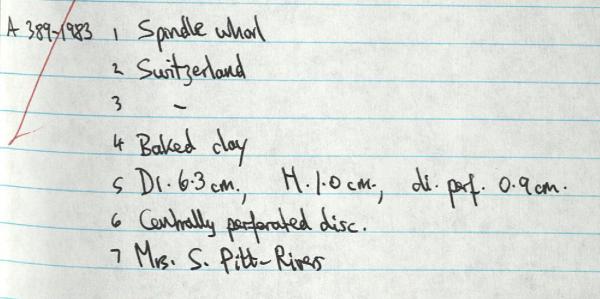 A 389-1983 1 Spindle whorl
2 Switzerland
3 -
4 Baked clay
5 Di. 6.3 cm., H. 1.0 cm., di. perf. 0.9 cm.
6 Centrally perforated disc.
7 Mrs. S. Pitt-Rivers